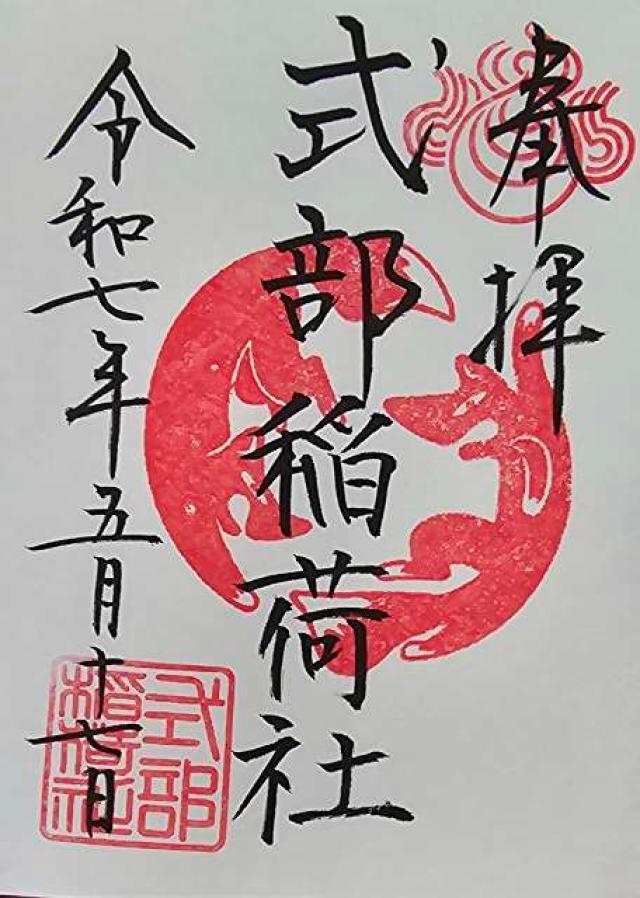 奉拝
式部稲荷社
令和七年五月十七日
式部
稲荷社